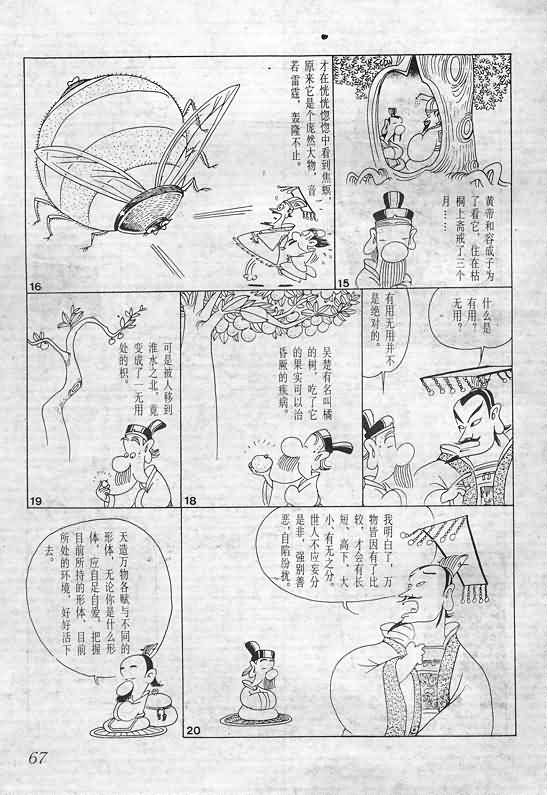 黄帝和容成子为
了看它，住在枯
桐上斋戒了三个
月……
15
才在恍恍惚惚中看到焦螟，
原来它是个庞然大物，音
若雷霆，轰隆不止。
16
什么是
有用？
无用？
有用无用并不
是绝对的。
17
吴楚有名叫橘
的树，吃了它
的果实可以治
昏厥的疾病。
18
可是被人移到
淮水之北，竟
变成了一无用
处的枳。
19
我明白了，万
物皆因有了比
较，才会有长
短、高下、大
小、有无之分。
世人不应妄分
是非，强别善
恶，自陷纷扰。
20
天造万物各赋与不同的
形体，无论你是什么形
体，应自足自爱，把握
目前所持的形体、目前
所处的环境，好好活下
去。
67